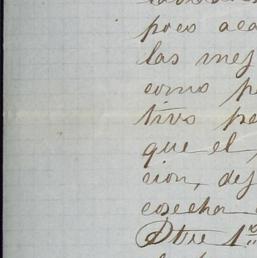 poco aca
las mej
como p
tivo pe
que el
cion, def
cosecha
Otre 1º